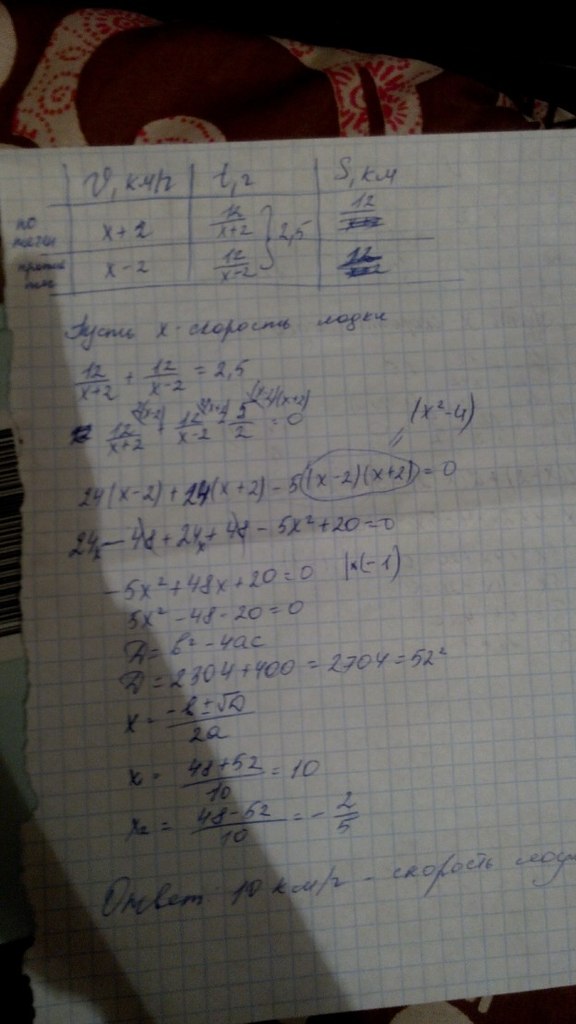 V, км/г t, г S, км
по течен x+2 12/(x+2) } 2,5 12
против x-2 12/(x-2) 12
Пусть x - скорость лодки
12/(x+2) + 12/(x-2) = 2,5
12/(x+2) + 12/(x-2) - 5/2 = 0 (x²-4)
24(x-2) + 24(x+2) - 5(x-2)(x+2) = 0
24x - 48 + 24x + 48 - 5x² + 20 = 0
-5x² + 48x + 20 = 0 |×(-1)
5x² - 48 - 20 = 0
D = b² - 4ac
D = 2304 + 400 = 2704 = 52²
x = (-b ± √D)/2a
x = (48+52)/10 = 10
x₂ = (48-52)/10 = -2/5
Ответ 10 км/г - скорость